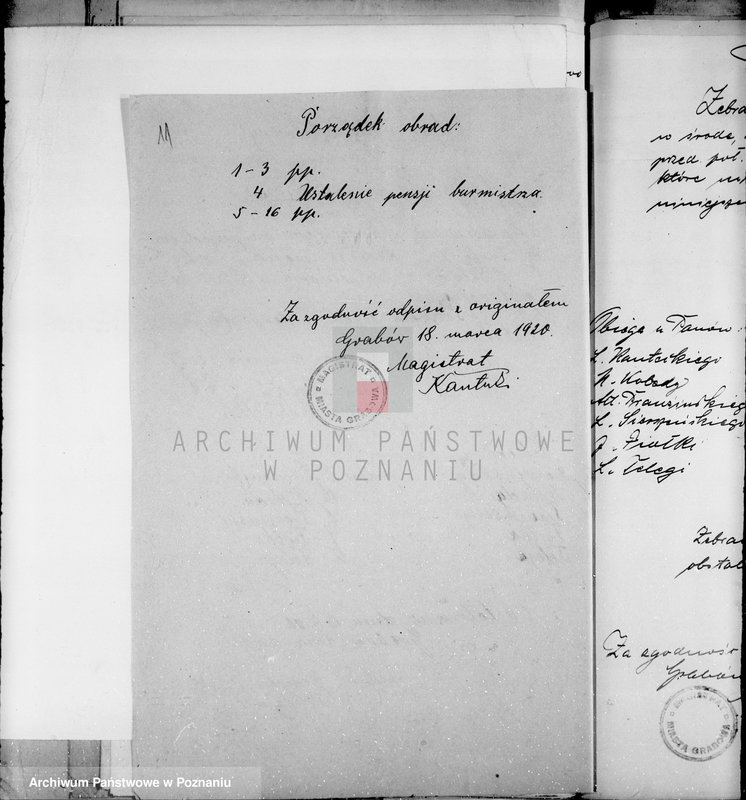 11
Porządek obrad:
1-3 pp.
4 Ustalenie pensji burmistrza.
5-16 pp.
Za zgodność odpisu z originałem
Grabów 18. marca 1920.
Magistrat
MAGISTRAT
MIASTA GRABOWA
ARCHIWUM PAŃSTWOWE
W POZNANIU
Zebra
w środę,
przed poł.
które
niniejsze
L. Sierpińskiego
J. Fiołki
L. Telegi
Zebra
obstal
Za zgodność
Grabów
MAGISTRAT
MIASTA GRABOWA
Archiwum Państwowe w Poznaniu